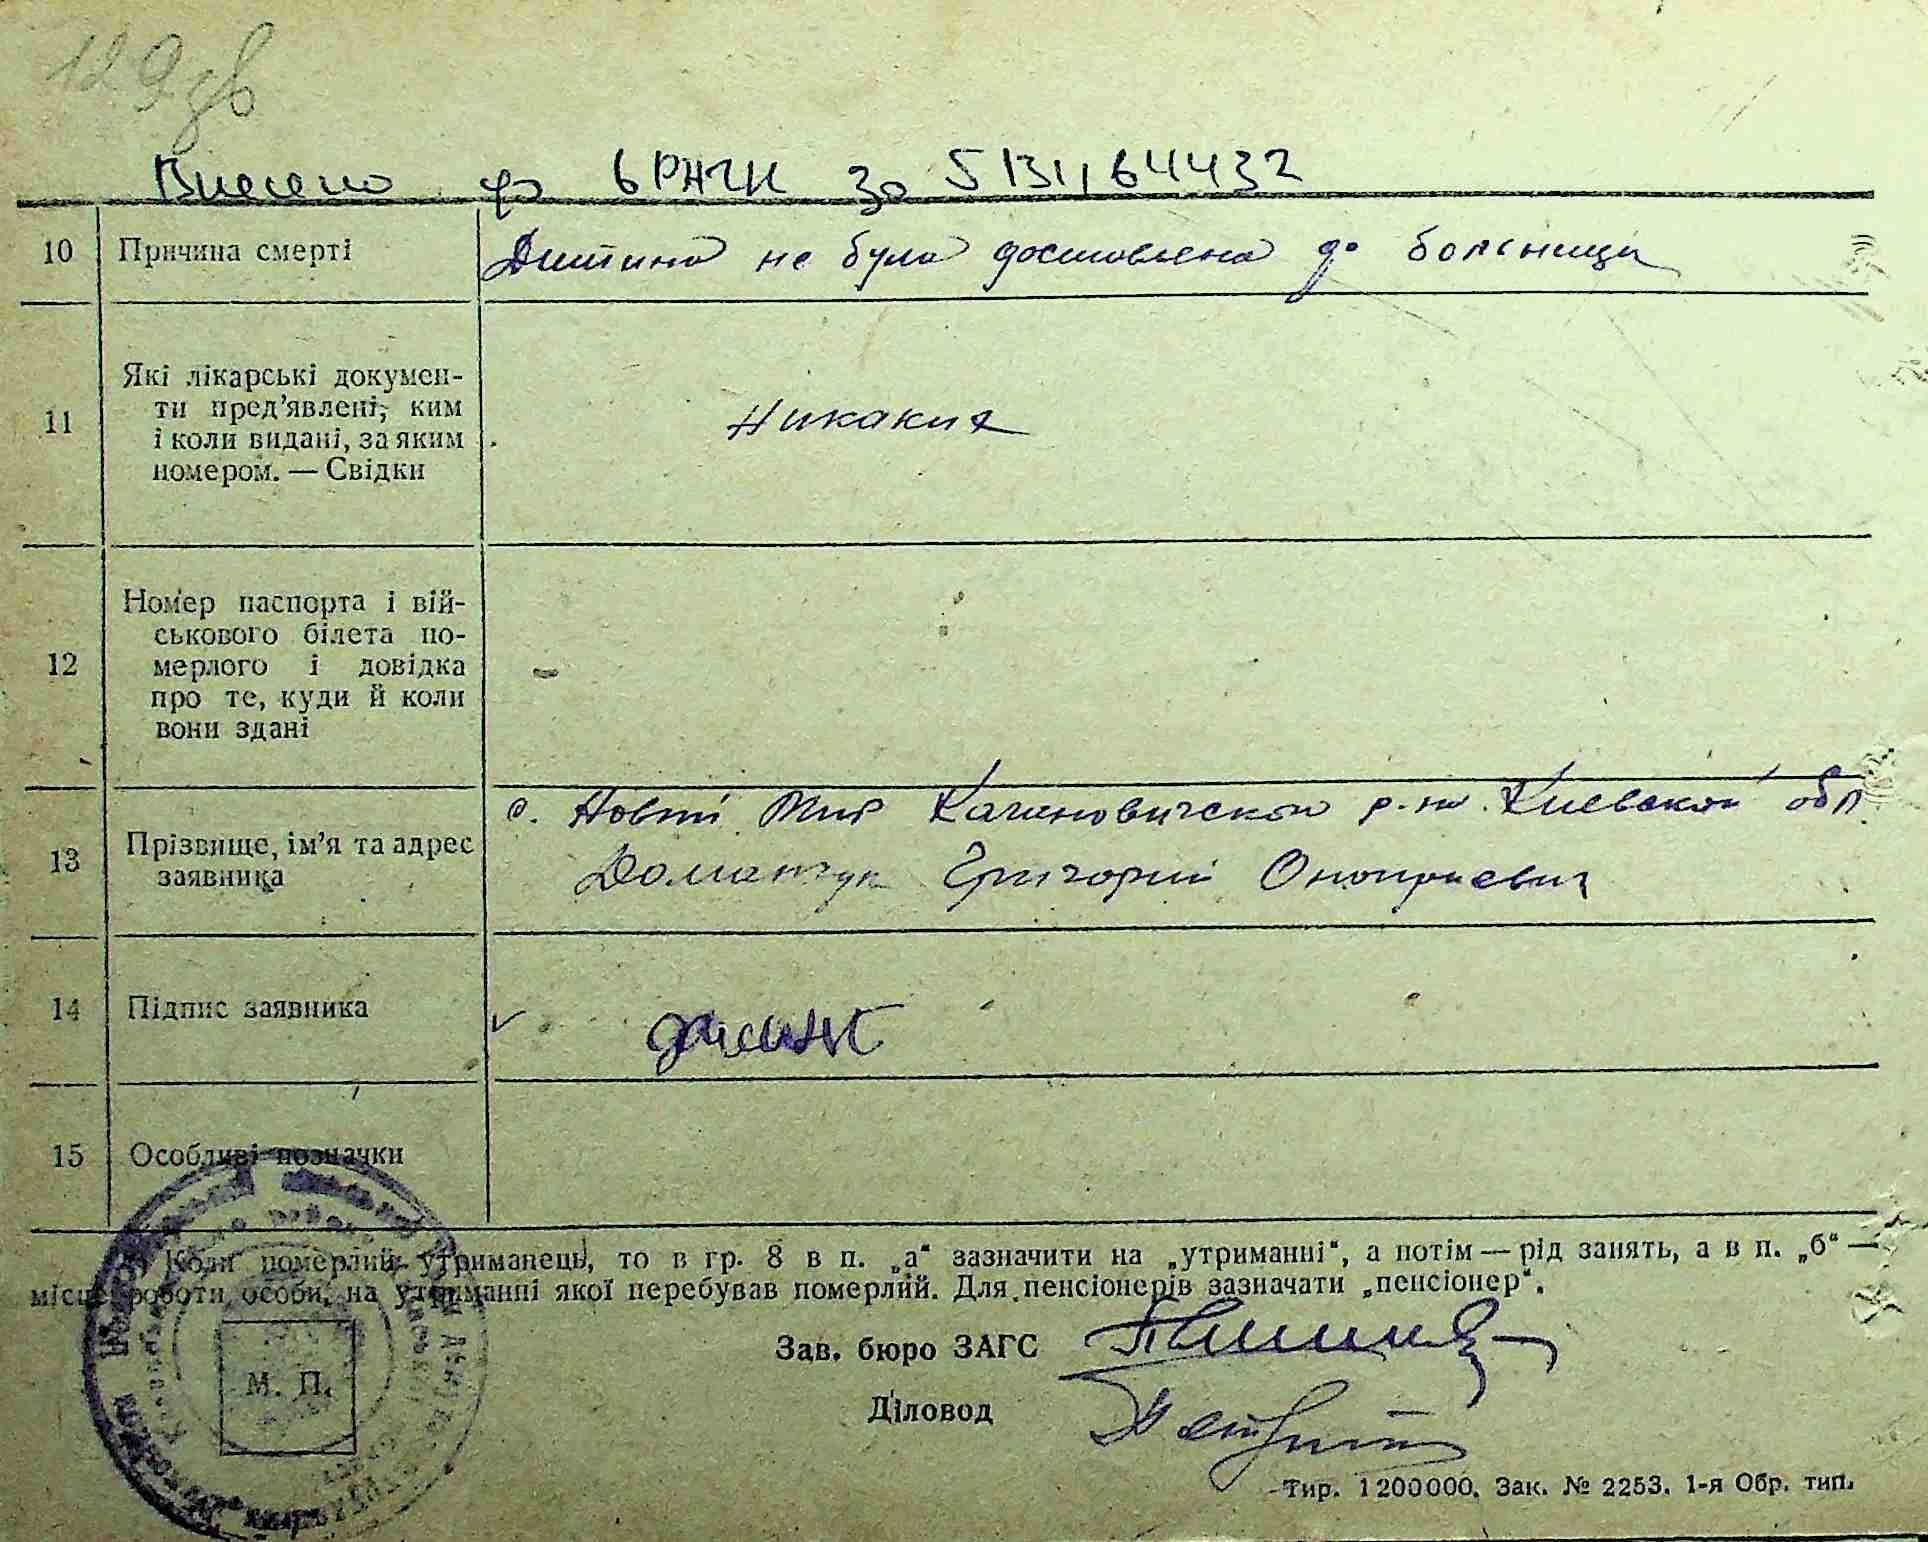 129 зв
Внесено до ЄРАЦС за 5131164432
10 Причина смерті Дитина не була доставлена до больници
11 Які лікарські докумен-
ти пред'явлені, ким
і коли видані, за яким
номером. — Свідки
Никаких
12 Номер паспорта і вій-
ськового білета по-
мерлого і довідка
про те, куди й коли
вони здані
-
13 Прізвище, ім'я та адрес
заявника
с. Новий Мир Кагановичский р-н. Киевской обл.
Григорий Оноприевич
14 Підпис заявника
15 Особливі позначки
Коли померлий утриманець, то в гр. 8 в п. „а“ зазначити на „утриманні“, а потім — рід занять, а в п. „б“ —
місце роботи особи, на утриманні якої перебував померлий. Для пенсіонерів зазначати „пенсіонер“.
Зав. бюро ЗАГС
М. П.
Діловод
Тир. 1200000. Зак. № 2253. 1-я Обр. тип.